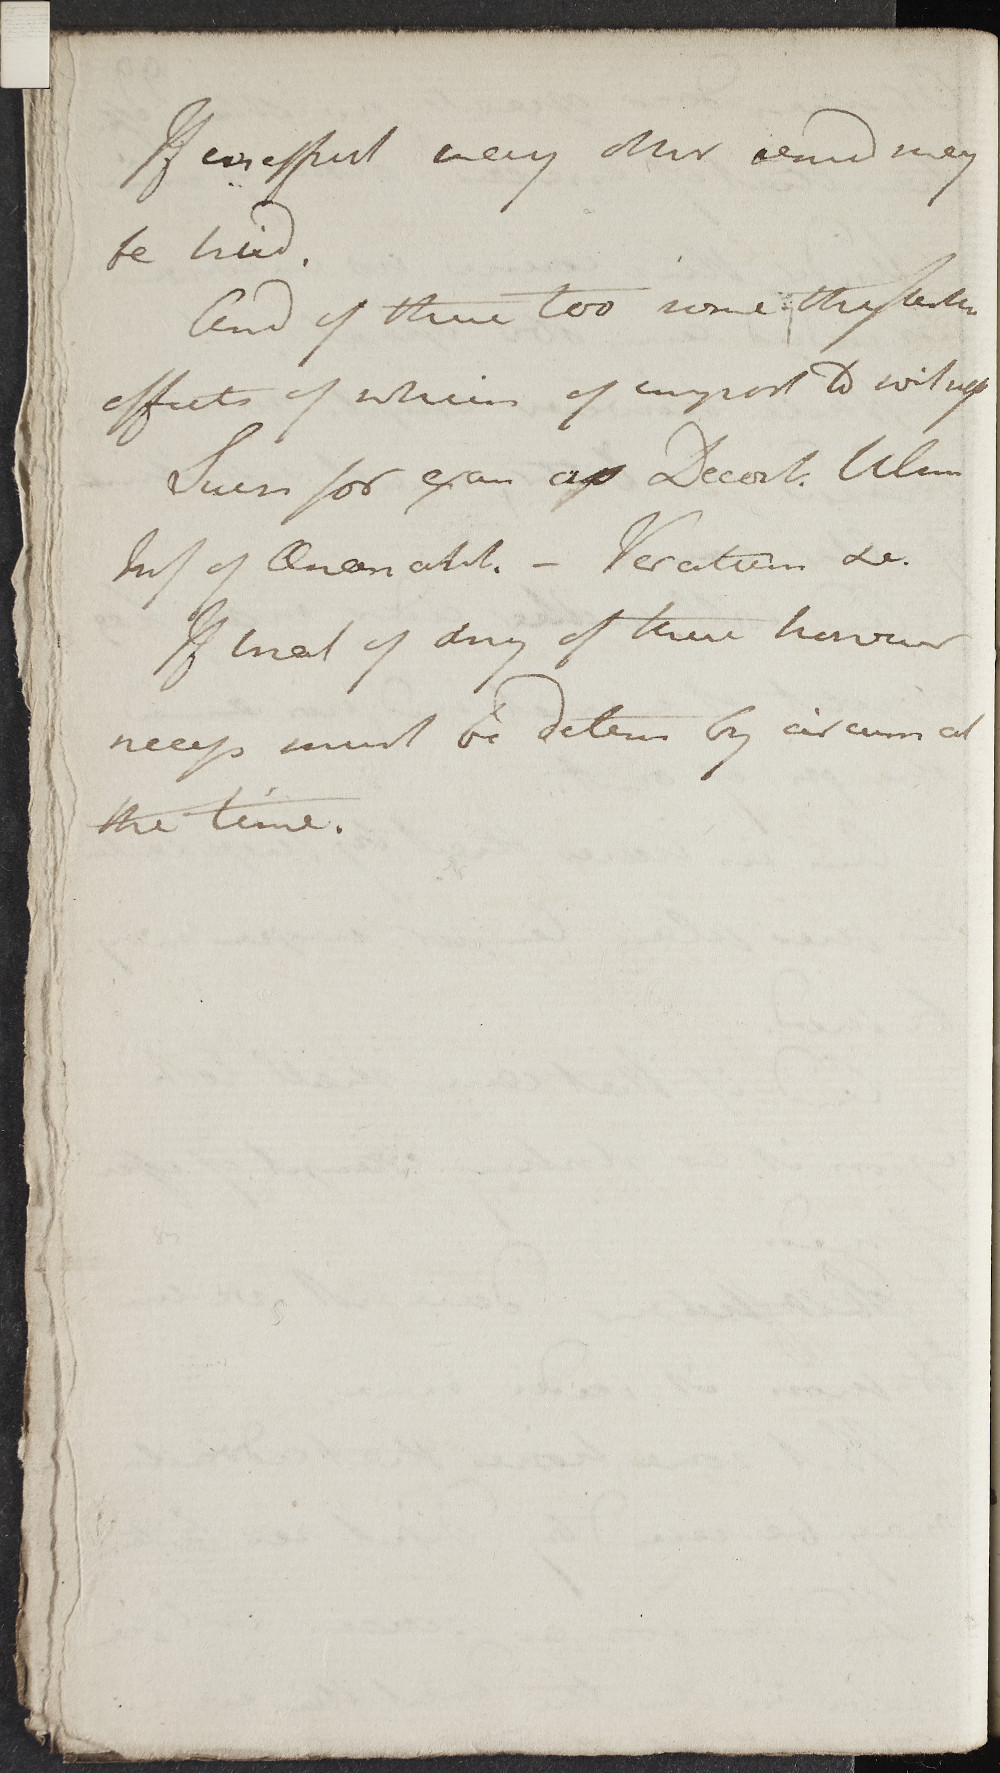 If ineffect many other remed may
be tried.
And of these too some the
effects of which of import to witness
Such for exam as Decoct. Ulm
Inf of . – Veratrum &c.
If trial of any of these however
necess must be determ by circum at
the time.